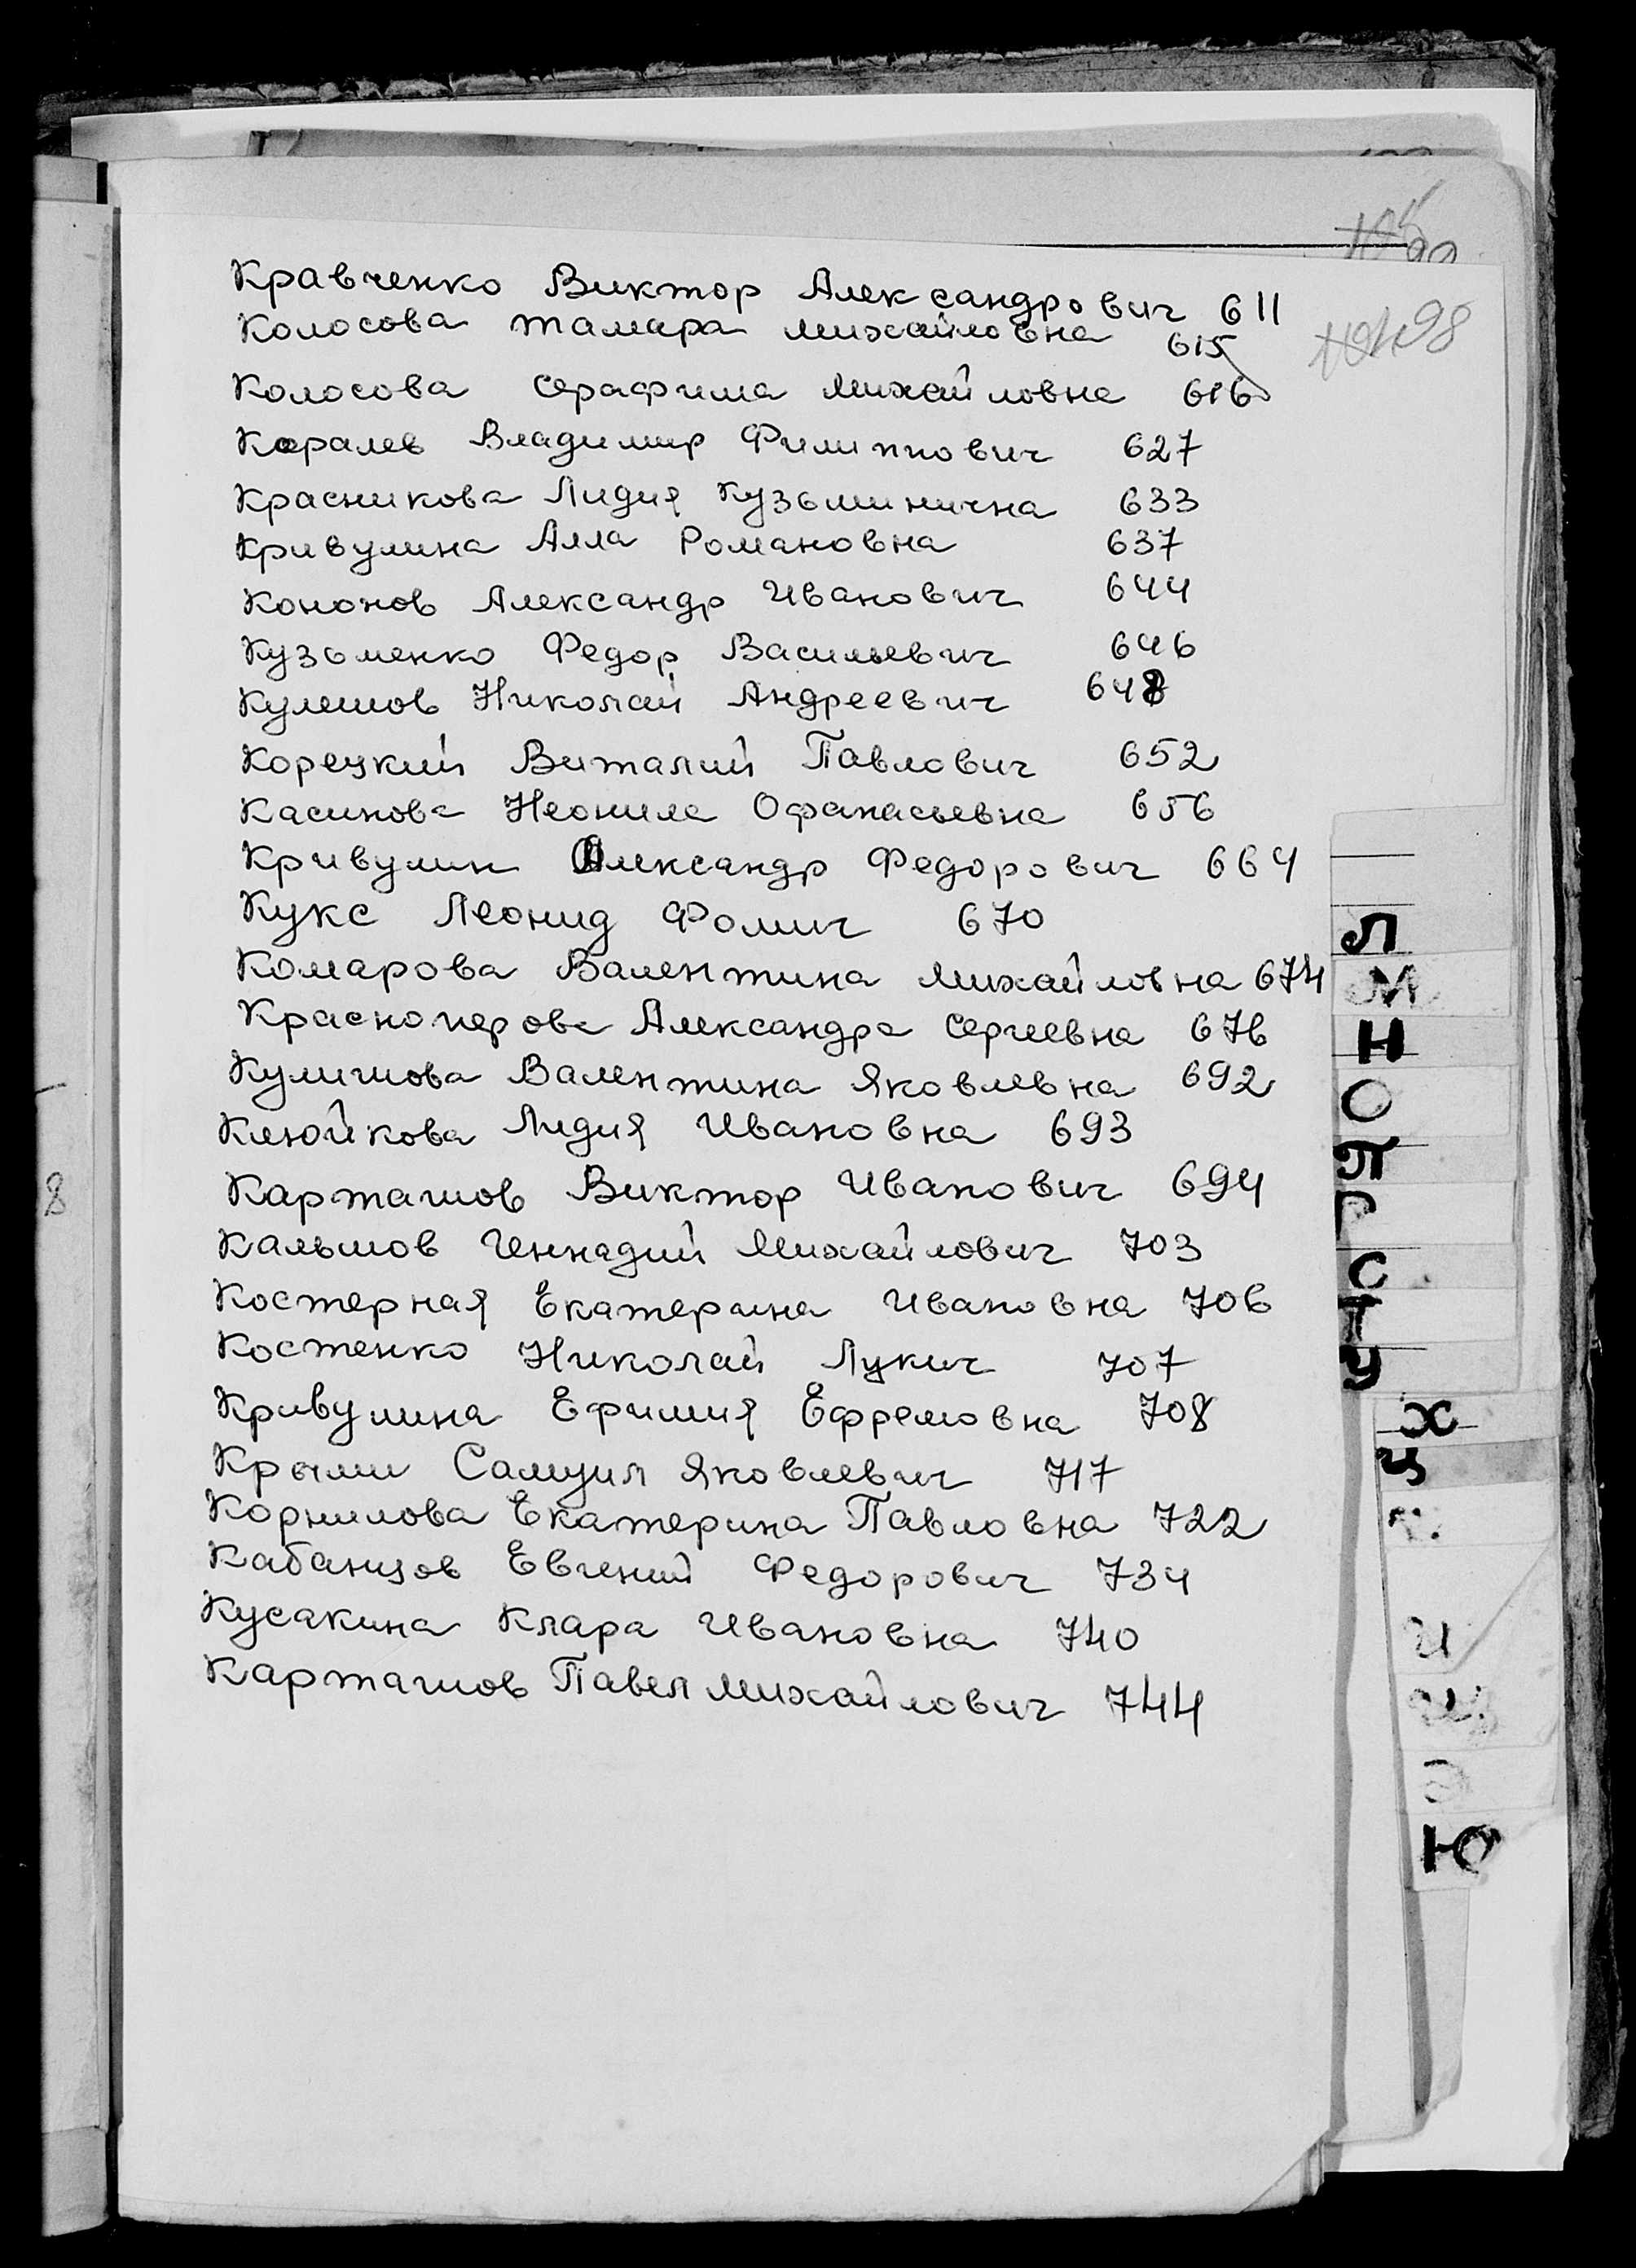 99
98
Кравченко Виктор Александрович 611
Колосова Тамара Михайловна 615
Колосова Серафима Михайловна 616
Королев Владимир Филиппович 627
Красникова Лидия Кузьминична 633
Кривулина Алла Романовна 637
Кононов Александр Иванович 644
Кузьменко Федор Васильевич 646
Кулешов Николай Андреевич 648
Корецкий Виталий Павлович 652
Касимова Неонила Офанасьевна 656
Кривулин Александр Федорович 664
Кукс Леонид Фомич 670
Комарова Валентина Михайловна 674
Красноперова Александра Сергеевна 676
Кулишова Валентина Яковлевна 692
Клюйкова Лидия Ивановна 693
Карташов Виктор Иванович 694
Кальмов Геннадий Михайлович 703
Костерная Екатерина Ивановна 706
Костенко Николай Лукич 707
Кривулина Ефимия Ефремовна 708
Крыми Самуил Яковлевич 717
Корнилова Екатерина Павловна 722
Кабанцов Евгений Федорович 734
Кусакина Клара Ивановна 740
Карташов Павел Михайлович 744
8
Л
М
Н
О
П
Р
С
Т
У
Х
Ц
Ю